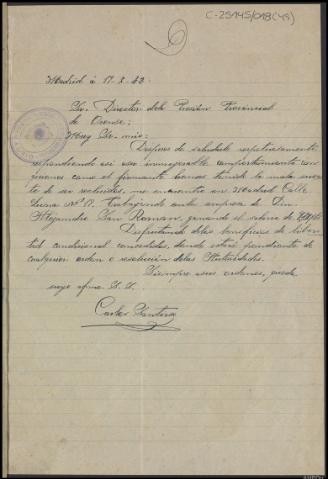 C-25145/018(45)
Madrid á 17. X. 43.
Sr. Director dela Prisión Provincial
de Orense:
Muy Sr. mio:
Despues de saludarle respetuosamente
agradeciendo asi su inmejorable comportamiento con
quienes como el firmante hemos tenido la mala suerte
de ser recluidos, me encuentro en Madrid Calle
Luna Nº 17. Trabajando enla empresa de Don
Alejandro San Roman, ganando el salario de
Disfrutando delos beneficios de liber-
tad condicional concedidos, dando estoi pendiente de
cualquier orden o resolución delas Autoridades.
Siempre asus ordenes, queda
suyo afmo. S. S.
Carlos Santoro